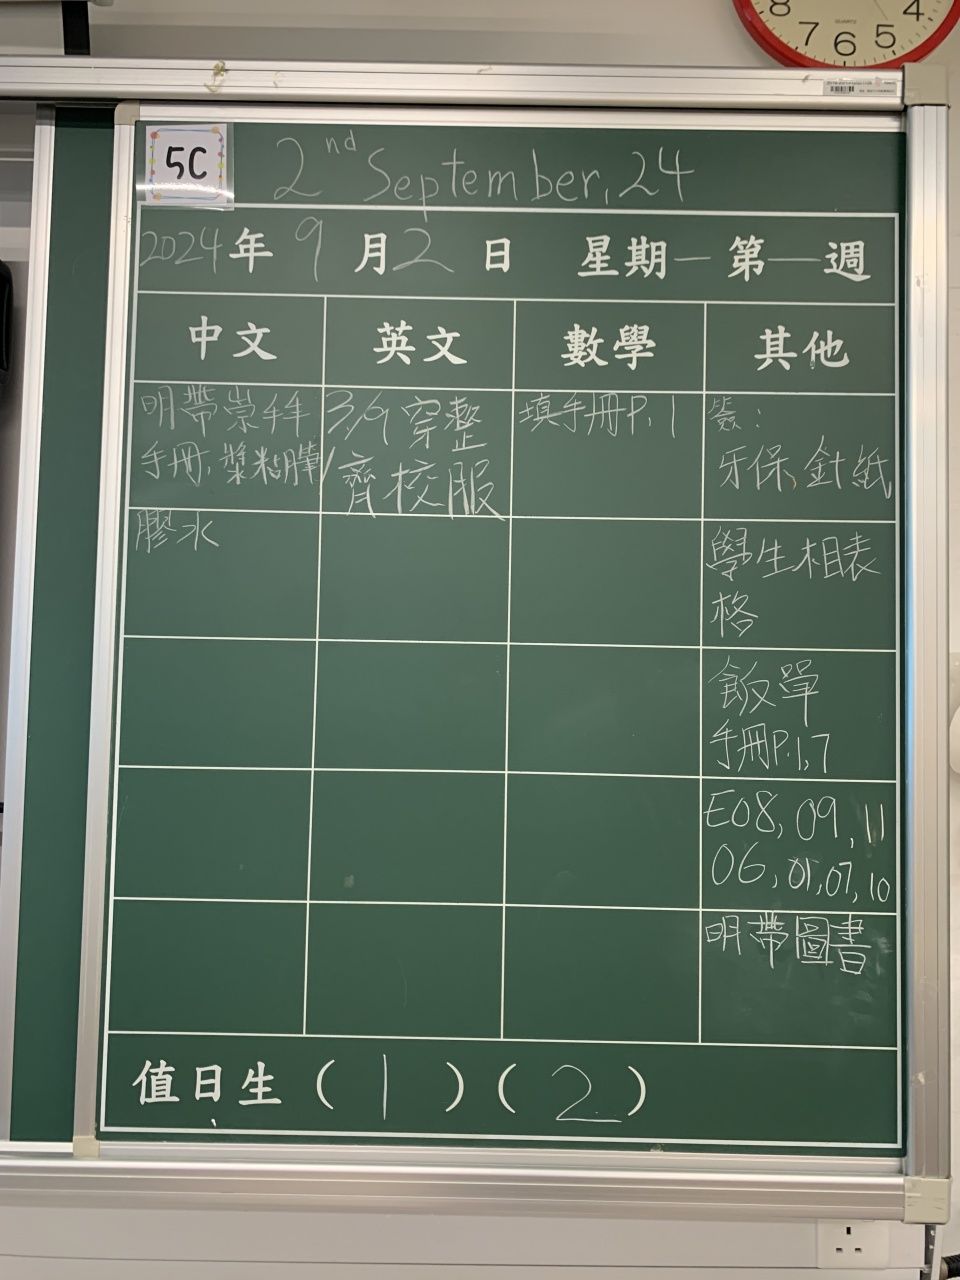 8 7 6 5 4
QUARTZ
5C
2nd September, 24
2024年 9月2日 星期一 第一週
中文 英文 數學 其他
明帶崇拜
手冊,漿粘膶/
膠水
3/9 穿整
齊校服
填手冊P.1
簽:
牙保,針紙
學生相表
格
飯單
手冊P.1,7
E08, 09, 11
06, 01, 07, 10
明帶圖書
值日生 ( 1 ) ( 2 )